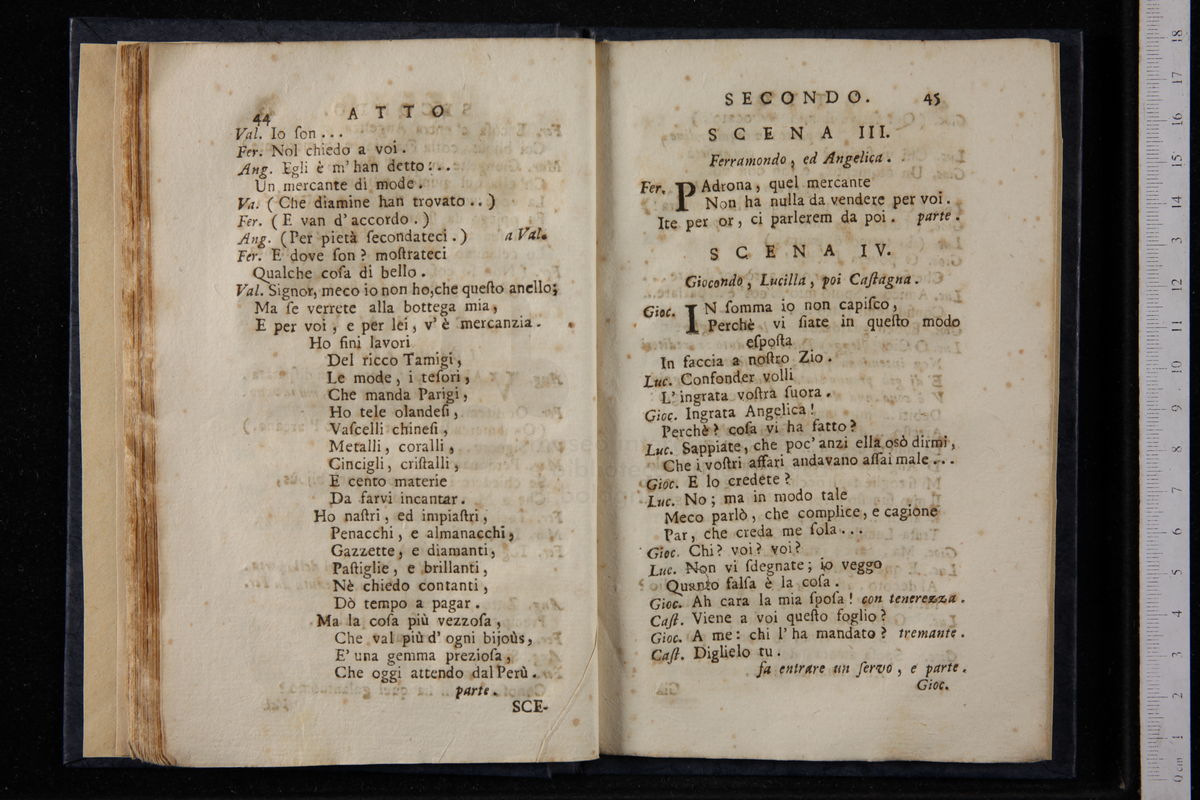 44 ATTO
Val. Io ſon . . .
Fer. Nol chiedo a voi .
Ang. Egli è m' han detto : . .
Un mercante di mode .
Va. ( Che diamine han trovato . . )
Fer. ( E van d' accordo . )
Ang. (Per pietà ſecondateci . ) a Val.
Fer. E dove ſon ? moſtrateci
Qualche coſa di bello .
Val. Signor, meco io non ho,che queſto anello;
Ma ſe verrete alla bottega mia ,
E per voi , e per lei , v' è mercanzia .
Ho fini lavori
Del ricco Tamigi ,
Le mode , i teſori ,
Che manda Parigi ,
Ho tele olandeſi ,
Vaſcelli chineſi ,
Metalli , coralli ,
Cincigli , criſtalli ,
E cento materie
Da farvi incantar .
Ho naſtri , ed impiaſtri ,
Penacchi , e almanacchi ,
Gazzette , e diamanti ,
Paſtiglie , e brillanti ,
Nè chiedo contanti ,
Dò tempo a pagar .
Ma la coſa più vezzoſa ,
Che val più d' ogni bijoùs ,
E' una gemma prezioſa ,
Che oggi attendo dal Perù .
parte .
SCE-
SECONDO. 45
SCENA III.
Ferramondo , ed Angelica .
Fer. PAdrona , quel mercante
Non ha nulla da vendere per voi .
Ite per or , ci parlerem da poi . parte .
SCENA IV.
Giocondo , Lucilla , poi Caſtagna .
Gioc. IN ſomma io non capiſco ,
Perchè vi ſiate in queſto modo
eſpoſta
In faccia a noſtro Zio .
Luc. Confonder volli
L' ingrata voſtra ſuora .
Gioc. Ingrata Angelica !
Perchè ? coſa vi ha fatto ?
Luc. Sappiate , che poc' anzi ella osò dirmi ,
Che i voſtri affari andavano aſſai male . . .
Gioc. E lo credete ?
Luc. No ; ma in modo tale
Meco parlò , che complice , e cagione
Par , che creda me ſola . . .
Gioc. Chi ? voi ? voi ?
Luc. Non vi ſdegnate ; io veggo
Quanto falſa è la coſa .
Gioc. Ah cara la mia ſpoſa ! con tenerezza .
Caſt. Viene a voi queſto foglio ?
Gioc. A me : chi l' ha mandato ? tremante .
Caſt. Diglielo tu .
fa entrare un ſervo , e parte .
Gioc.
0 cm 1 2 3 4 5 6 7 8 9 10 11 12 13 14 15 16 17 18